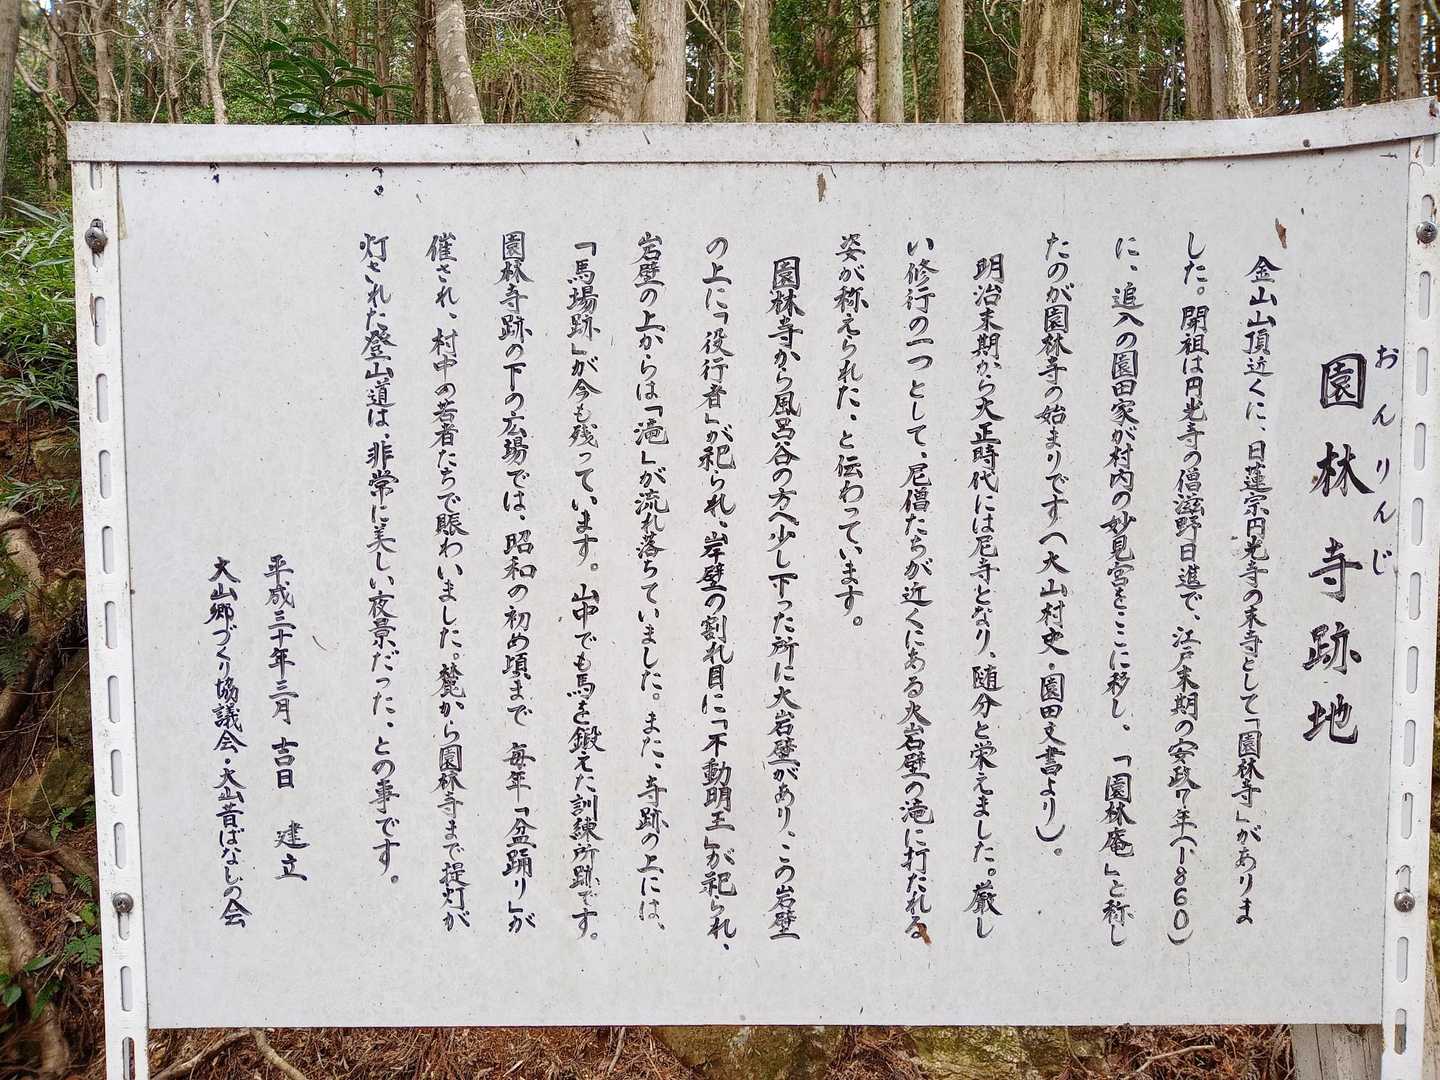 おんりんじ
園林寺跡地
金山山頂近くに、日蓮宗円光寺の末寺として「園林寺」がありま
した。開祖は円光寺の僧滋野日進で、江戸末期の安政7年（1860）
に、追入の園田家が村内の妙見宮をここに移し、「園林庵」と称し
たのが園林寺の始まりです（大山村史・園田文書より）。
明治末期から大正時代には尼寺となり、随分と栄えました。厳し
い修行の一つとして、尼僧たちが近くにある大岩壁の滝に打たれる
姿が称えられた、と伝わっています。
園林寺から風呂谷の方へ少し下った所に大岩壁があり、この岩壁
の上に「役行者」が祀られ、岸壁の割れ目に「不動明王」が祀られ、
岩壁の上からは「滝」が流れ落ちていました。また、寺跡の上には、
「馬場跡」が今も残っています。山中でも馬を鍛えた訓練所跡です。
園林寺跡の下の広場では、昭和の初め頃まで毎年「盆踊り」が
催され、村中の若者たちで賑わいました。麓から園林寺まで提灯が
灯された登山道は、非常に美しい夜景だった、との事です。
平成三十年三月吉日 建立
大山郷づくり協議会・大山昔ばなしの会